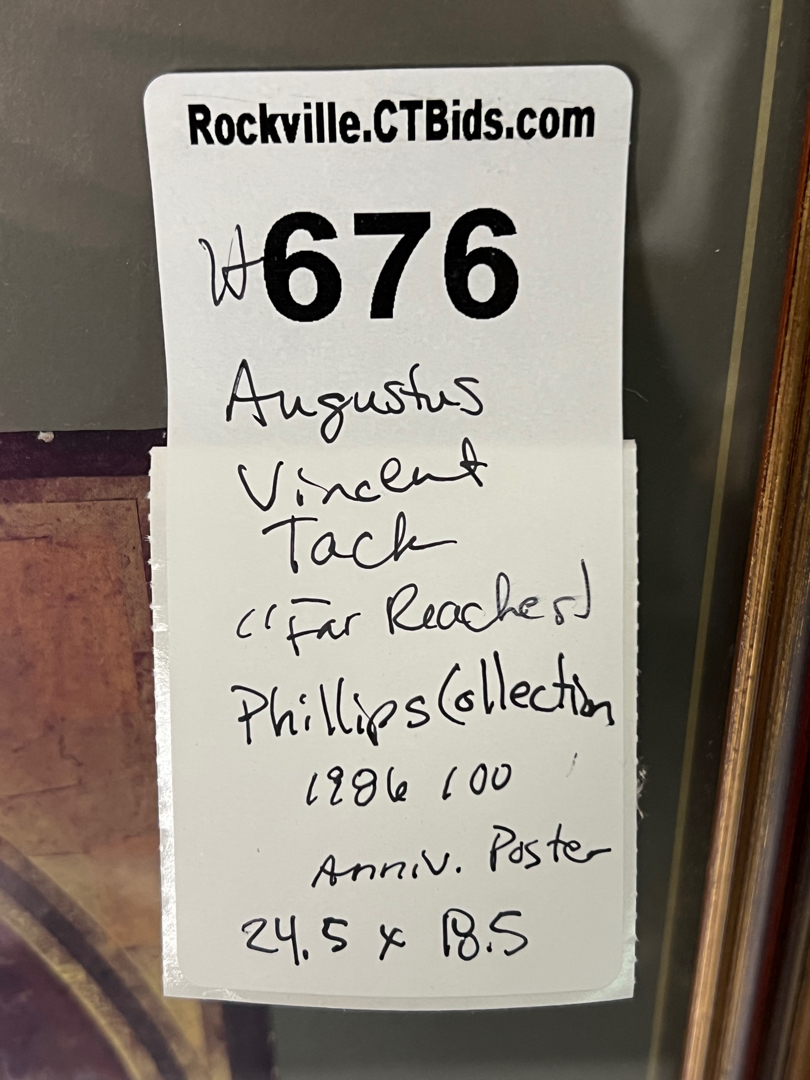 Rockville.CTBids.com
#676
Augustus
Vincent
Tack
"Far Reaches)
Phillips Collection
1986 100
Anniv. Poster
24.5 x 18.5